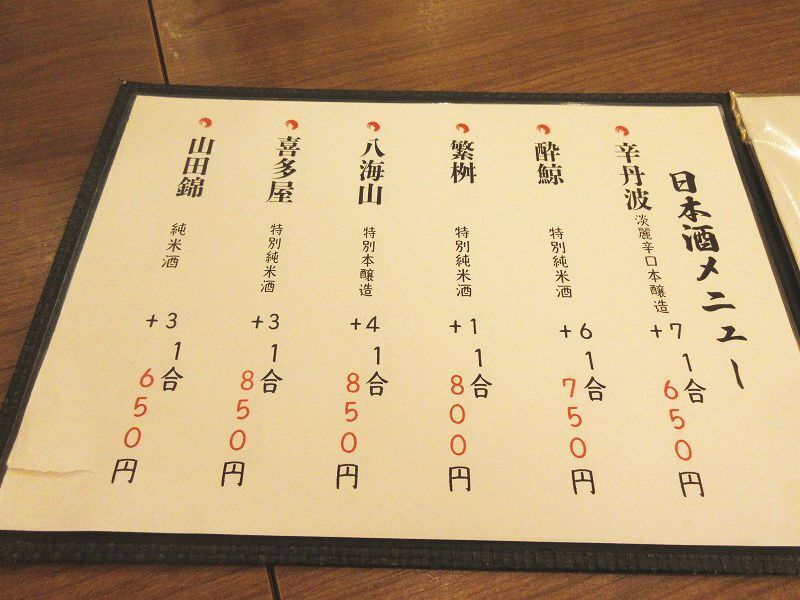 日本酒メニュー
辛丹波 淡麗辛口本醸造 +7 1合 650円
酔鯨 特別純米酒 +6 1合 750円
繁桝 特別純米酒 +1 1合 800円
八海山 特別本醸造 +4 1合 850円
喜多屋 特別純米酒 +3 1合 850円
山田錦 純米酒 +3 1合 650円